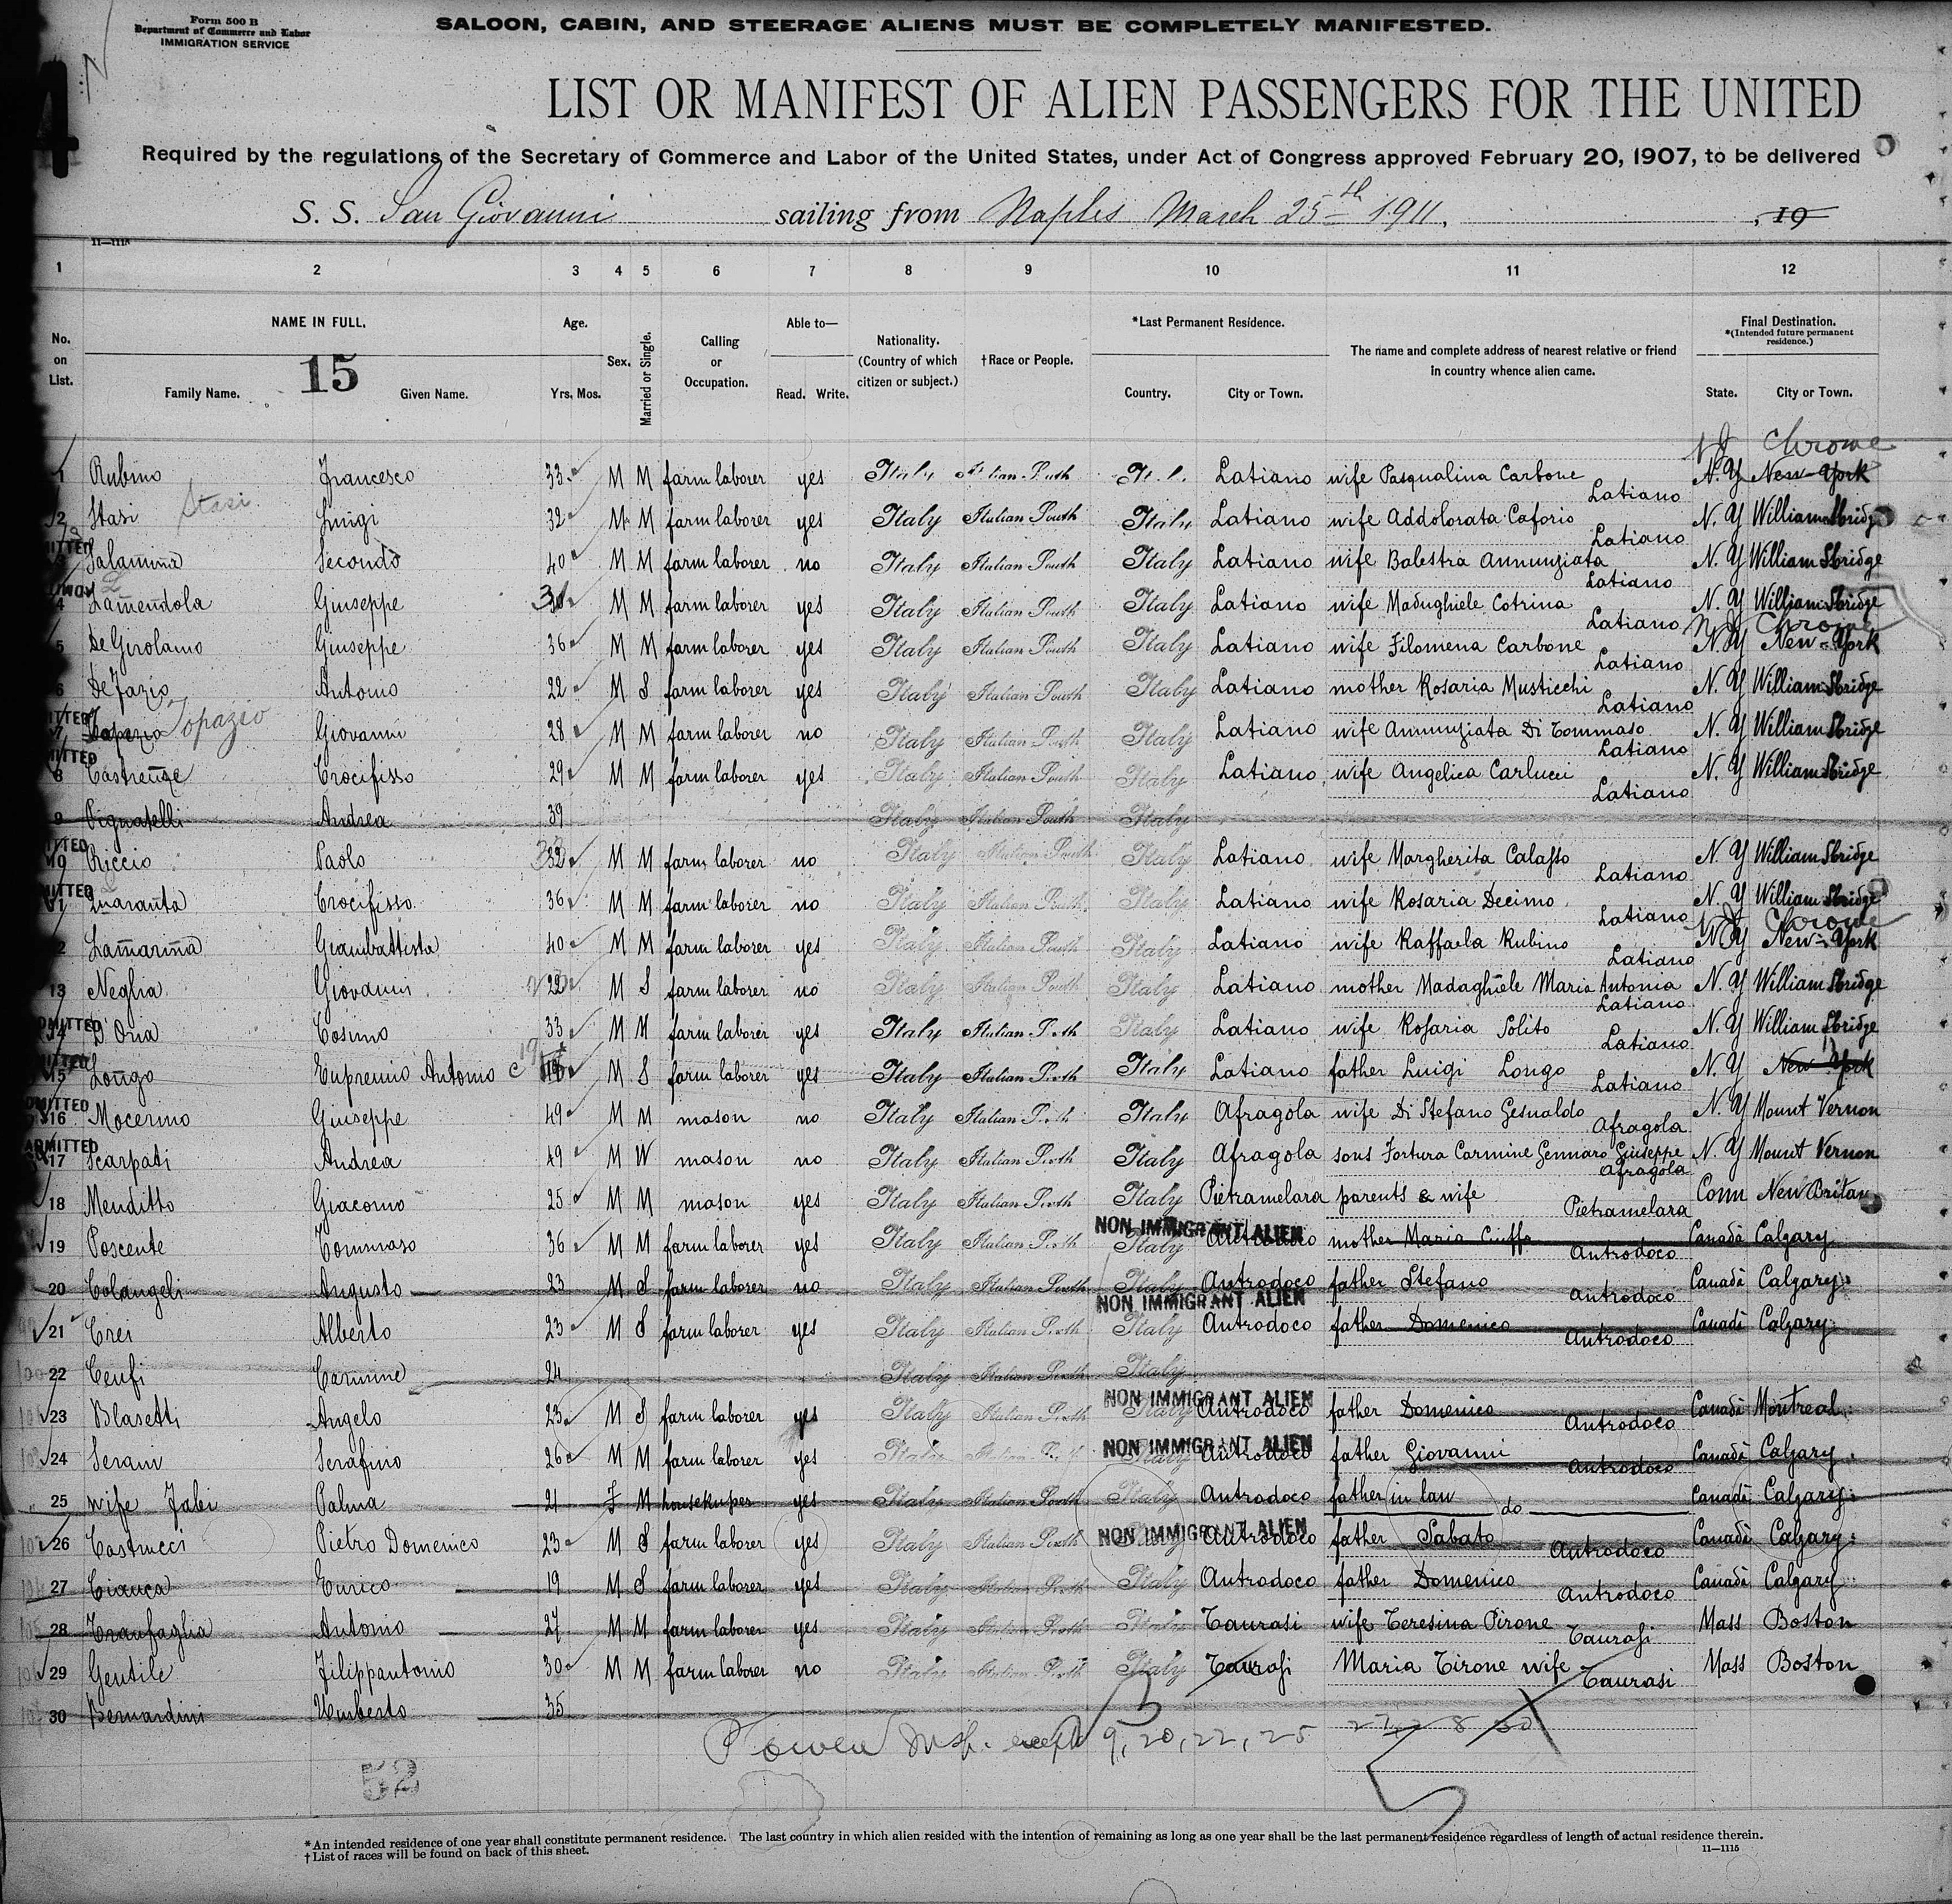 Form 500 B
Department of Commerce and Labor
IMMIGRATION SERVICE
SALOON, CABIN, AND STEERAGE ALIENS MUST BE COMPLETELY MANIFESTED.
4
LIST OR MANIFEST OF ALIEN PASSENGERS FOR THE UNITED
Required by the regulations of the Secretary of Commerce and Labor of the United States, under Act of Congress approved February 20, 1907, to be delivered
S. S. San Giovanni sailing from Naples March 25th 1911. , 19
11—1115
1 2 3 4 5 6 7 8 9 10 11 12
No. on List. NAME IN FULL. Family Name. Given Name. Age. Yrs. Mos. Sex. Married or Single. Calling or Occupation. Able to— Read. Write. Nationality. (Country of which citizen or subject.) †Race or People. *Last Permanent Residence. Country. City or Town. The name and complete address of nearest relative or friend in country whence alien came. Final Destination. *(Intended future permanent residence.) State. City or Town.
15
NJ Chrome
1 Rubino Francesco 33 M M farm laborer yes Italy Italian South Italy Latiano wife Pasqualina Carbone Latiano N.Y New-York
2 Stasi Stasi Luigi 32 M M farm laborer yes Italy Italian South Italy Latiano wife Addolorata Caforio Latiano N.Y WilliamSbridge
3 Salamina Secondo 40 M M farm laborer no Italy Italian South Italy Latiano wife Balestra Annunziata Latiano N.Y WilliamSbridge
4 Lamendola Giuseppe M M farm laborer yes Italy Italian South Italy Latiano wife Madughiele Cotrina Latiano N.Y WilliamSbridge
NJ Chrome
5 De Girolamo Giuseppe 36 M M farm laborer yes Italy Italian South Italy Latiano wife Filomena Carbone Latiano N.Y New-York
6 De Fazio Antonio 22 M S farm laborer yes Italy Italian South Italy Latiano mother Rosaria Musticchi Latiano N.Y WilliamSbridge
7 Topazio Giovanni 28 M M farm laborer no Italy Italian South Italy Latiano wife Annunziata Di Tommaso Latiano N.Y WilliamSbridge
8 Castrenze Crocifisso 29 M M farm laborer yes Italy Italian South Italy Latiano wife Angelica Carlucci Latiano N.Y WilliamSbridge
9 Pignatelli Andrea 39 Italy Italian South Italy
10 Riccio Paolo 32 M M farm laborer no Italy Italian South Italy Latiano wife Margherita Calasso Latiano N.Y WilliamSbridge
11 Quaranta Crocifisso 36 M M farm laborer no Italy Italian South Italy Latiano wife Rosaria Decimo Latiano N.Y WilliamSbridge
NJ Chrome
12 Lamarina Giambattista 40 M M farm laborer yes Italy Italian South Italy Latiano wife Raffaela Rubino Latiano N.Y New-York
13 Neglia Giovanni 22 M S farm laborer no Italy Italian South Italy Latiano mother Madaghiele Maria Antonia Latiano N.Y WilliamSbridge
14 D'Oria Cosimo 33 M M farm laborer yes Italy Italian South Italy Latiano wife Rosaria Solito Latiano N.Y WilliamSbridge
15 Longo Eupremio Antonio 19 M S farm laborer yes Italy Italian South Italy Latiano father Luigi Longo Latiano N.Y New-York
16 Mocerino Giuseppe 49 M M mason no Italy Italian South Italy Afragola wife Di Stefano Gesualdo Afragola N.Y Mount Vernon
ADMITTED
17 Scarpati Andrea 49 M W mason no Italy Italian South Italy Afragola sons Fortura Carmine Gennaro Giuseppe Afragola N.Y Mount Vernon
18 Menditto Giacomo 25 M M mason yes Italy Italian South Italy Pietramelara parents & wife Pietramelara Conn New Britain
NON IMMIGRANT ALIEN
19 Poscente Tommaso 36 M M farm laborer yes Italy Italian South Italy Antrodoco mother Maria Ciuffa Antrodoco Canadà Calgary
20 Colangeli Augusto 23 M S farm laborer no Italy Italian South Italy Antrodoco father Stefano Antrodoco Canadà Calgary
NON IMMIGRANT ALIEN
21 Crei Alberto 23 M S farm laborer yes Italy Italian South Italy Antrodoco father Domenico Antrodoco Canadà Calgary
22 Ceufi Carmine 24 Italy Italian South Italy
NON IMMIGRANT ALIEN
23 Blasetti Angelo 23 M S farm laborer yes Italy Italian South Italy Antrodoco father Domenico Antrodoco Canadà Montreal
NON IMMIGRANT ALIEN
24 Serani Serafino 26 M M farm laborer yes Italy Italian South Italy Antrodoco father Giovanni Antrodoco Canadà Calgary
25 wife Fabi Palma 21 F M housekeper yes Italy Italian South Italy Antrodoco father in law do Canadà Calgary
NON IMMIGRANT ALIEN
26 Castrucci Pietro Domenico 23 M S farm laborer yes Italy Italian South Italy Antrodoco father Sabato Antrodoco Canadà Calgary
27 Cianca Enrico 19 M S farm laborer yes Italy Italian South Italy Antrodoco father Domenico Antrodoco Canadà Calgary
28 Tranfaglia Antonio 27 M M farm laborer yes Italy Italian South Italy Taurasi wife Teresina Pirone Taurasi Mass Boston
29 Gentile Filippantonio 30 M M farm laborer no Italy Italian South Italy Taurasi Maria Tirone wife Taurasi Mass Boston
30 Bernardini Umberto 35
Insp. except 9, 20, 22, 25 27, 28 30
52
*An intended residence of one year shall constitute permanent residence. The last country in which alien resided with the intention of remaining as long as one year shall be the last permanent residence regardless of length of actual residence therein.
†List of races will be found on back of this sheet.
11—1115